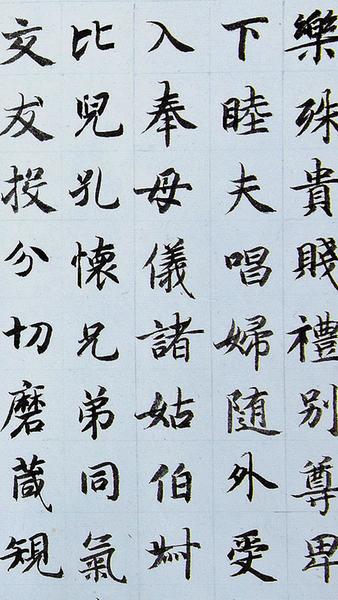 樂殊貴賤禮别尊卑
下睦夫唱婦随外受
入奉母儀諸姑伯叔
比兒孔懷兄弟同氣
交友投分切磨葴規